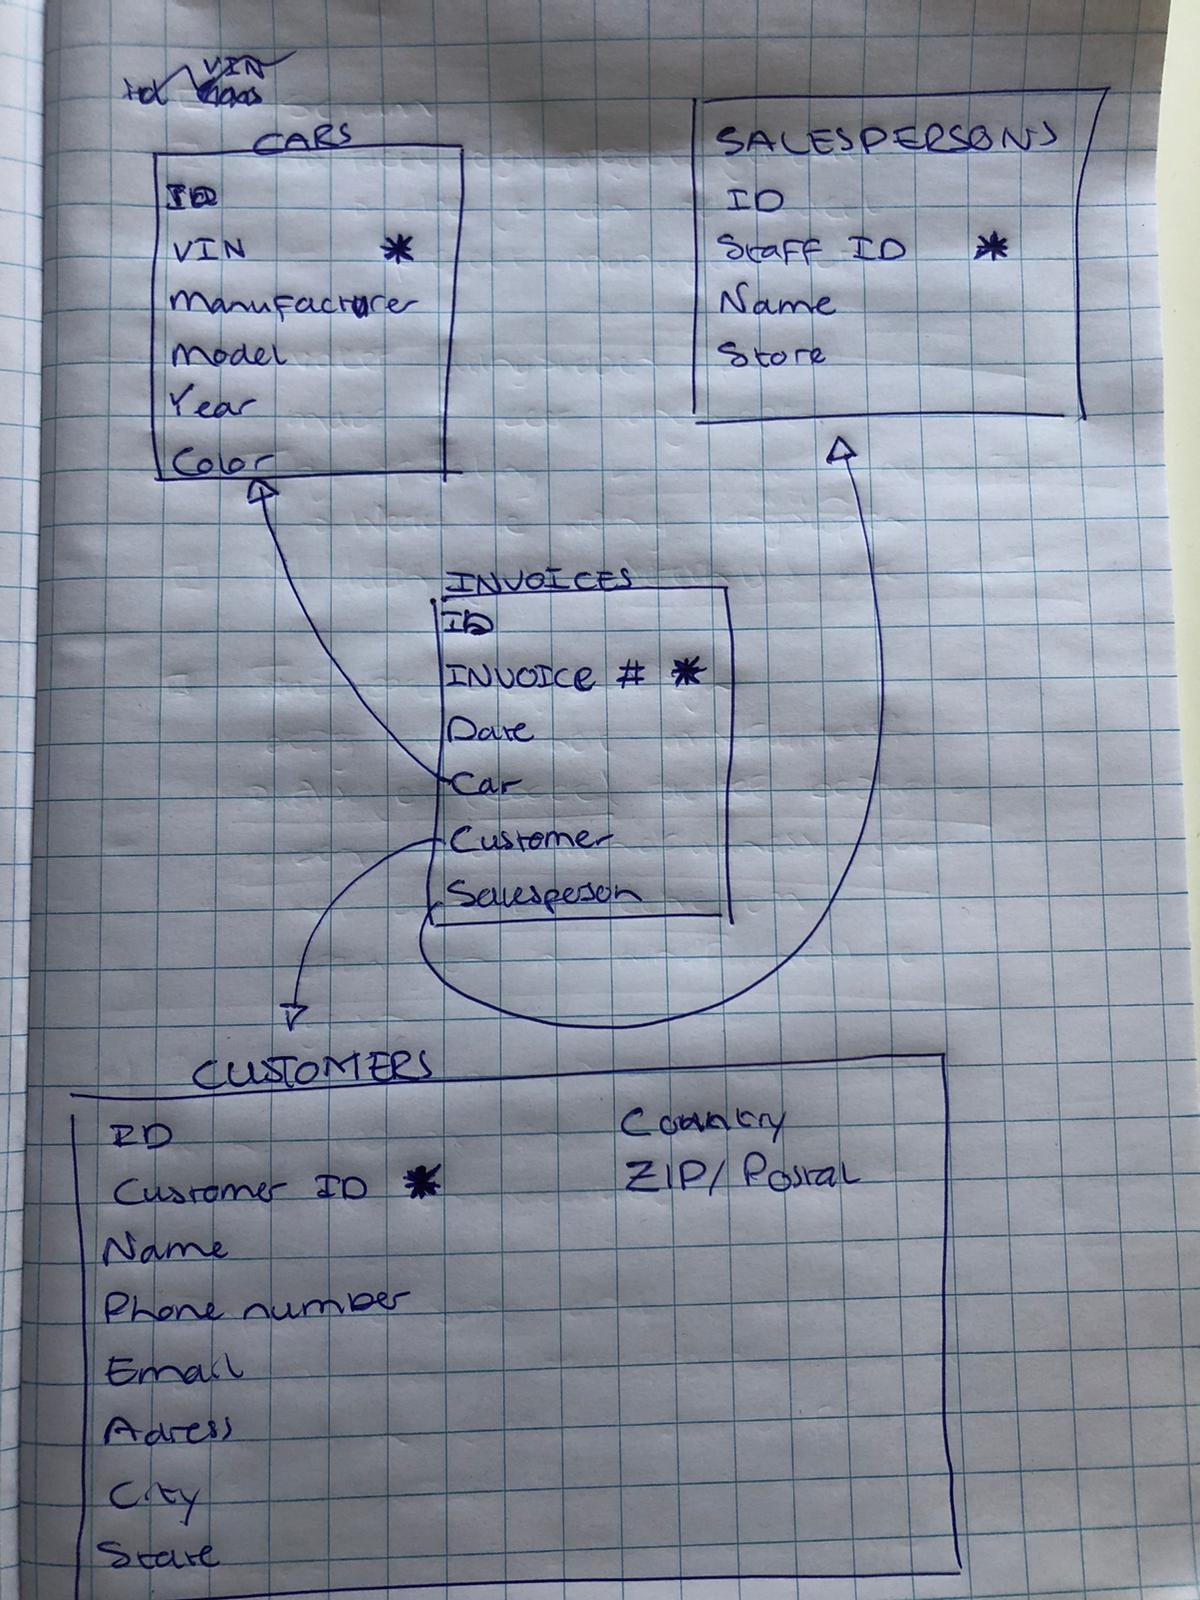 VIN
CARS
ID
VIN *
Manufacturer
Model
Year
Color
SALESPERSONS
ID
Staff ID *
Name
Store
INVOICES
ID
INVOICE # *
Date
Car
Customer
Salesperson
CUSTOMERS
ID
Customer ID *
Name
Phone number
Email
Adress
City
State
Country
ZIP/Postal